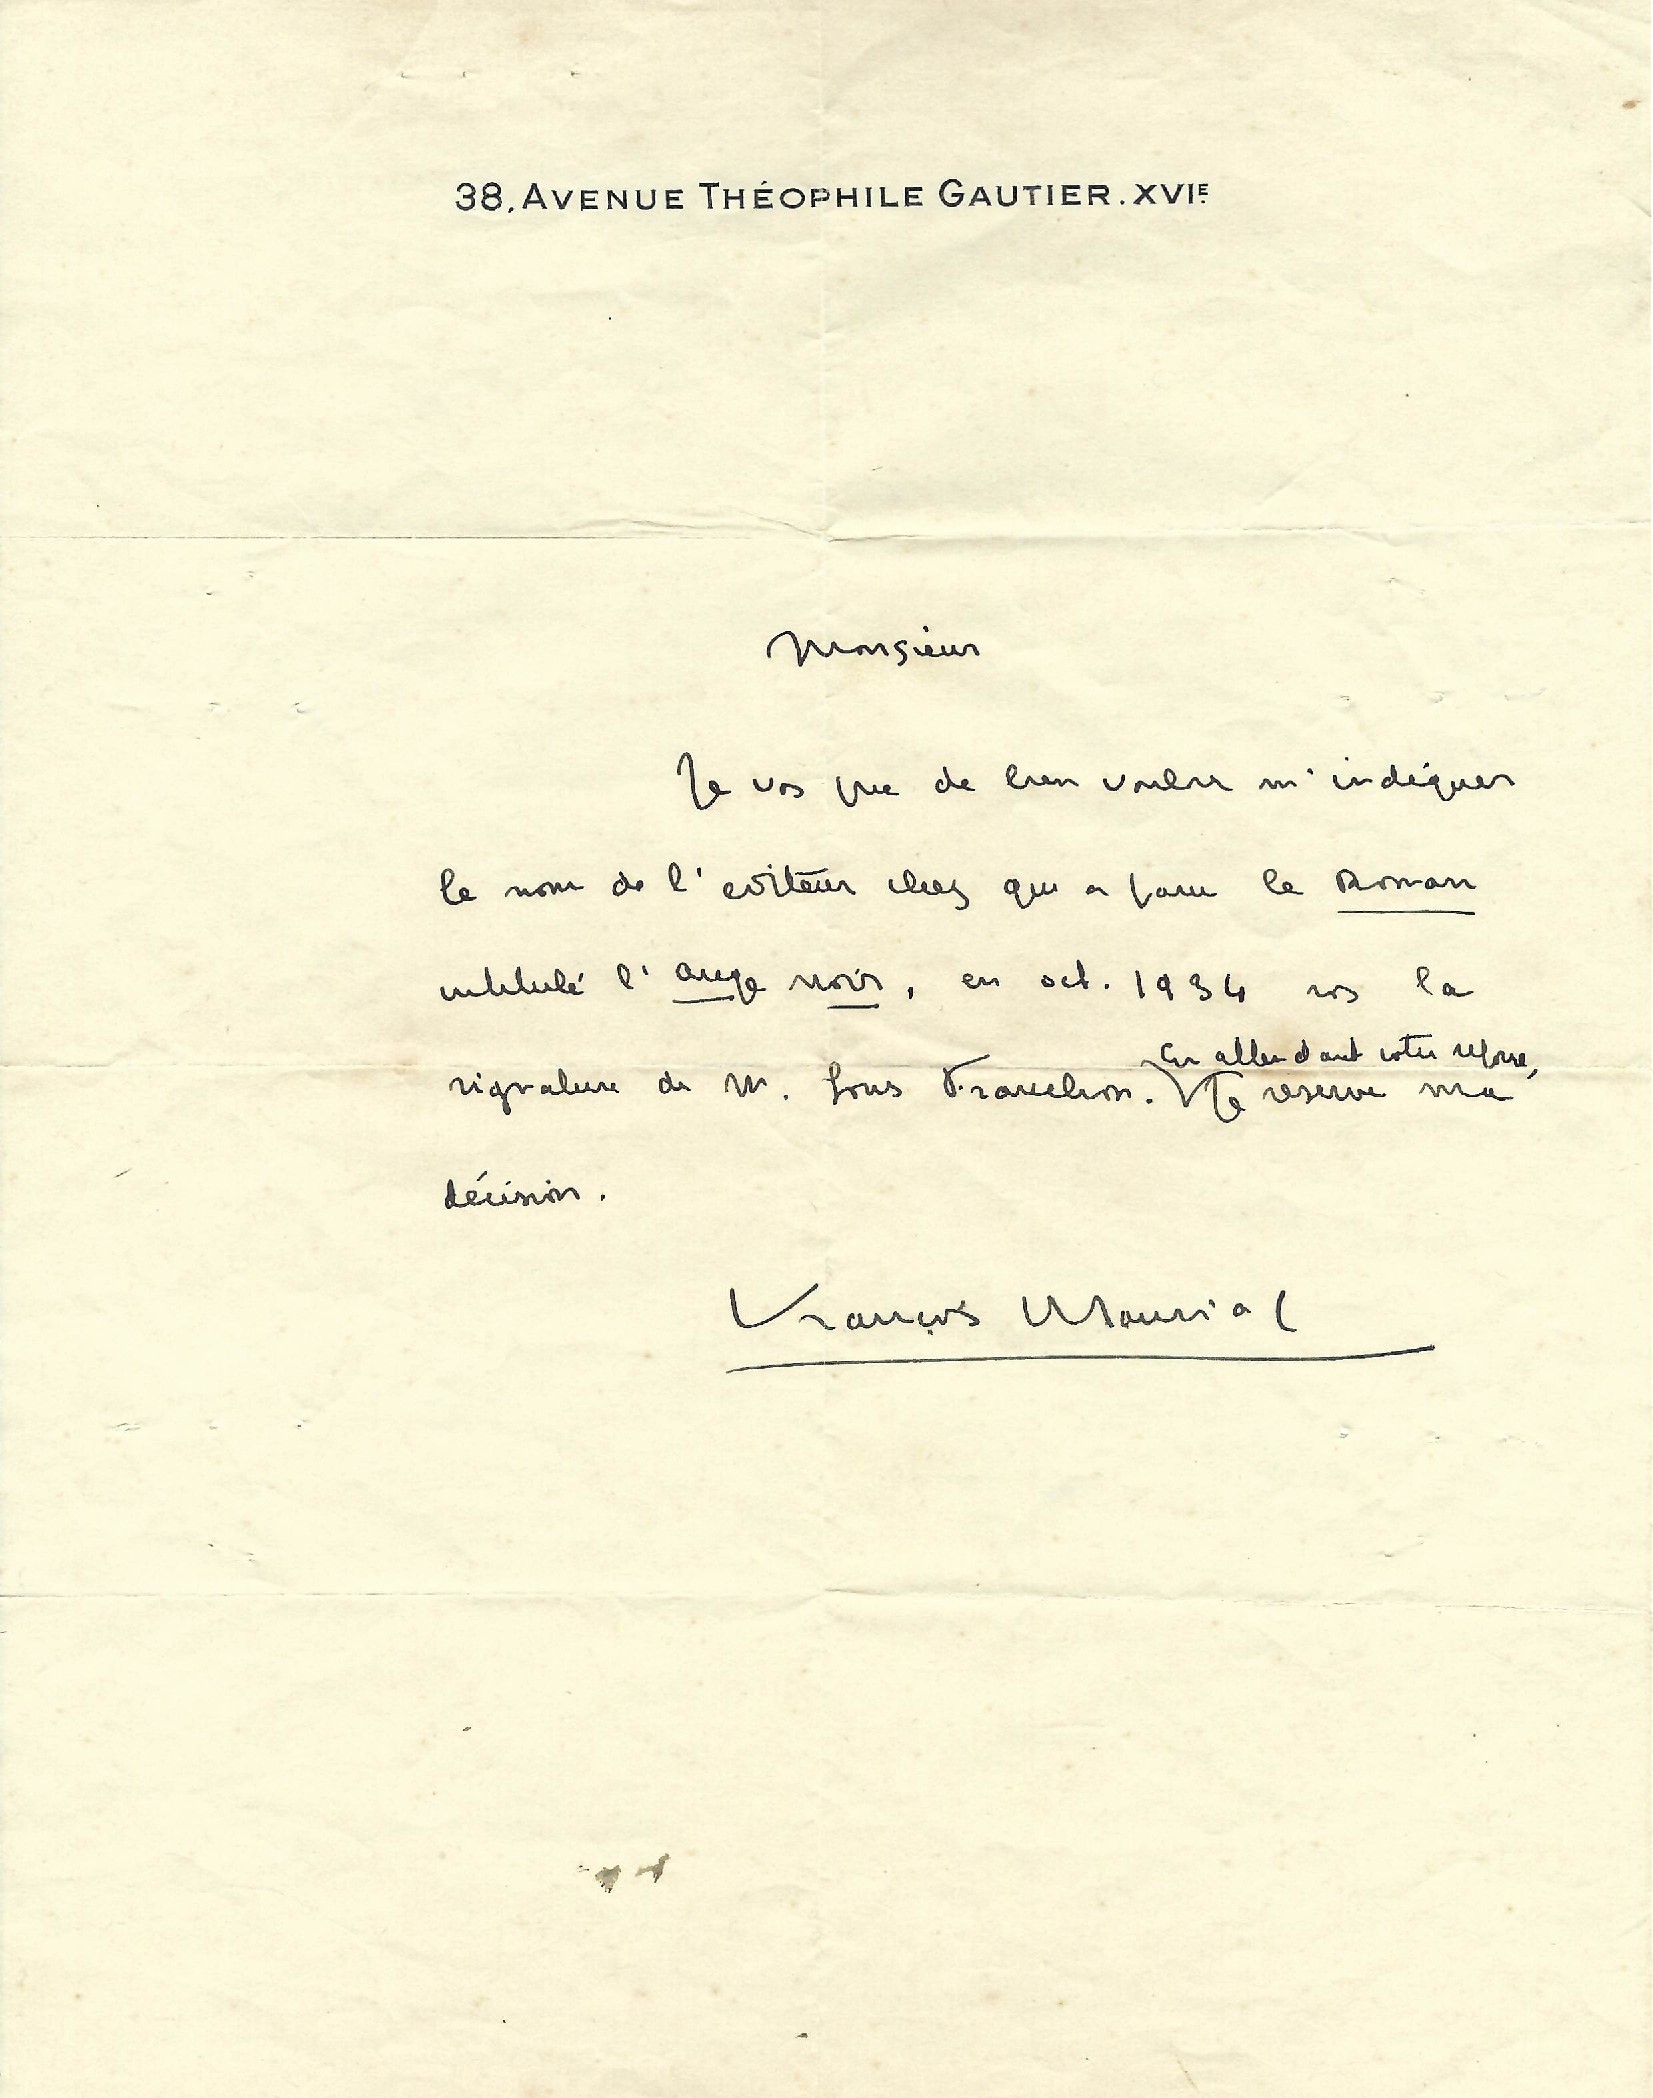 38, AVENUE THÉOPHILE GAUTIER. XVIE
Monsieur
Je vous prie de bien vouloir m'indiquer
le nom de l'editeur chez qui a paru le Roman
intitulé l'ange noir, en oct. 1934 sous la
En attendant votre réponse,
signature de M. Louis Francheon. Je reserve ma
décision.
François Mauriac